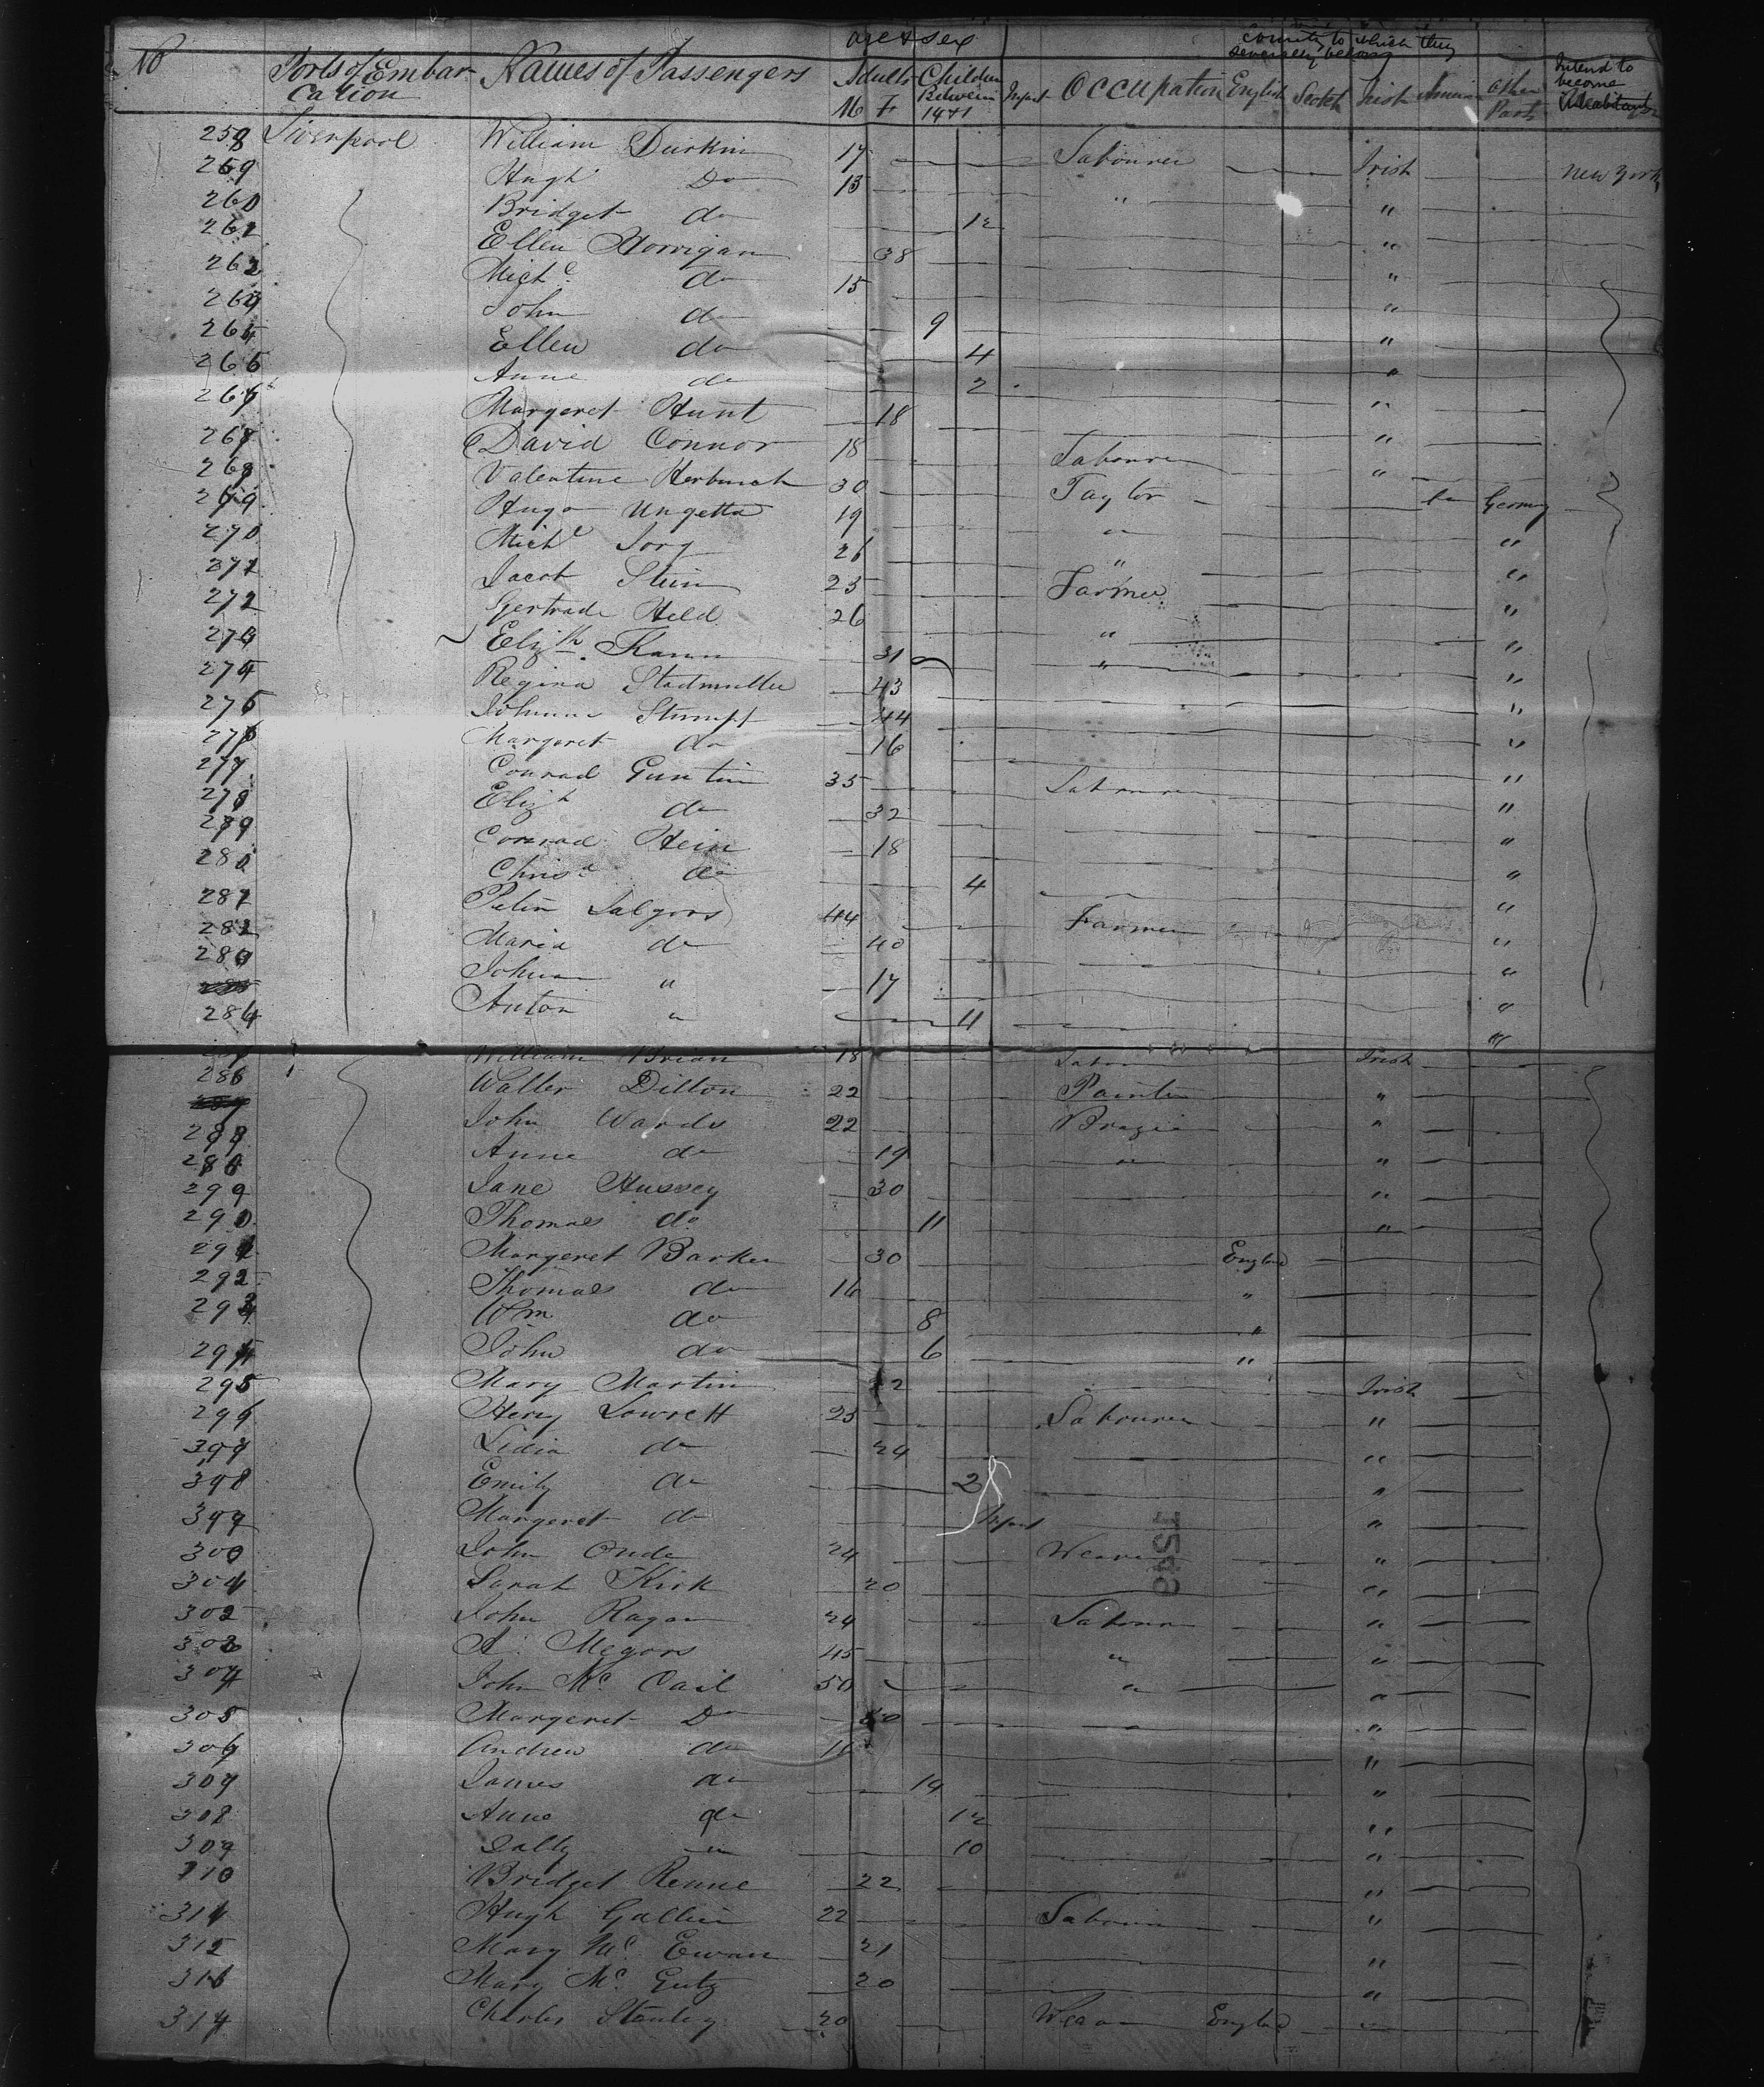 age & sex
County to which they
severally belong
No Ports of Embar- Names of Passengers Adults Children Infant Occupation English Scotch Irish Other Intend to
cation M F Between 14 & 1 Parts become Inhabitants
258 Liverpool William Durkin 17 Labourer Irish New York
259 Hugh Do 13 " "
260 Bridget do 12 "
261 Ellen Horrigan 38 "
262 Michl do 15 "
263 John do 9 "
264 Ellen do 4 "
265 Anne do 2 "
266 Margeret Hunt 18 "
267 David Connor 18 Labourer "
268 Valentine 30 Taylor Germy
269 Hugo Ungetta 19 " "
270 Michl Jorg 26 " "
271 Jacob Stein 23 Farmer "
272 Gertrude Held 26 " "
273 Elizth Kann 31 " "
274 Regina Stadmuller 43 "
275 Johanna Stumpf 44 "
276 Margeret do 16 "
277 Conrad Guntin 35 Labourer "
278 Elizh do 32 "
279 Conrad Hein 18 "
280 do 4 "
281 44 Farmer "
282 Maria do 40 "
283 Johan " 17 "
284 Anton " 4 "
William Brian 18 Irish
286 Walter Dillon 22 Painter "
John Wards 22 Brazier "
288 Anne do 19 " "
Jane Hussey 30 "
290 Thomas do 11 "
291 Margeret Barker 30 England
292 Thomas do 16 "
293 Wm do 8 "
294 John do 6 "
295 Mary Martin Irish
296 Henry Lowrett 25 Labourer "
397 Lidia do 24 "
398 Emily do 2 "
399 Margeret do Infant "
300 John Onde 24 Weaver "
301 Sarah Kirk 20 "
302 John Ragan 24 Labour "
303 Megors 45 " "
304 John Mc Cail 50 " "
305 Margeret Do "
306 Andrew do "
307 James do 14 "
308 Anne do 12 "
309 Sally do 10 "
310 Bridget Reane 22 "
311 Hugh Gallein 22 Labourer "
312 Mary Mc Ewan 21 "
313 Mary Mc Gutz 20 "
314 Charles Stanley 20 Weaver Engld
1249